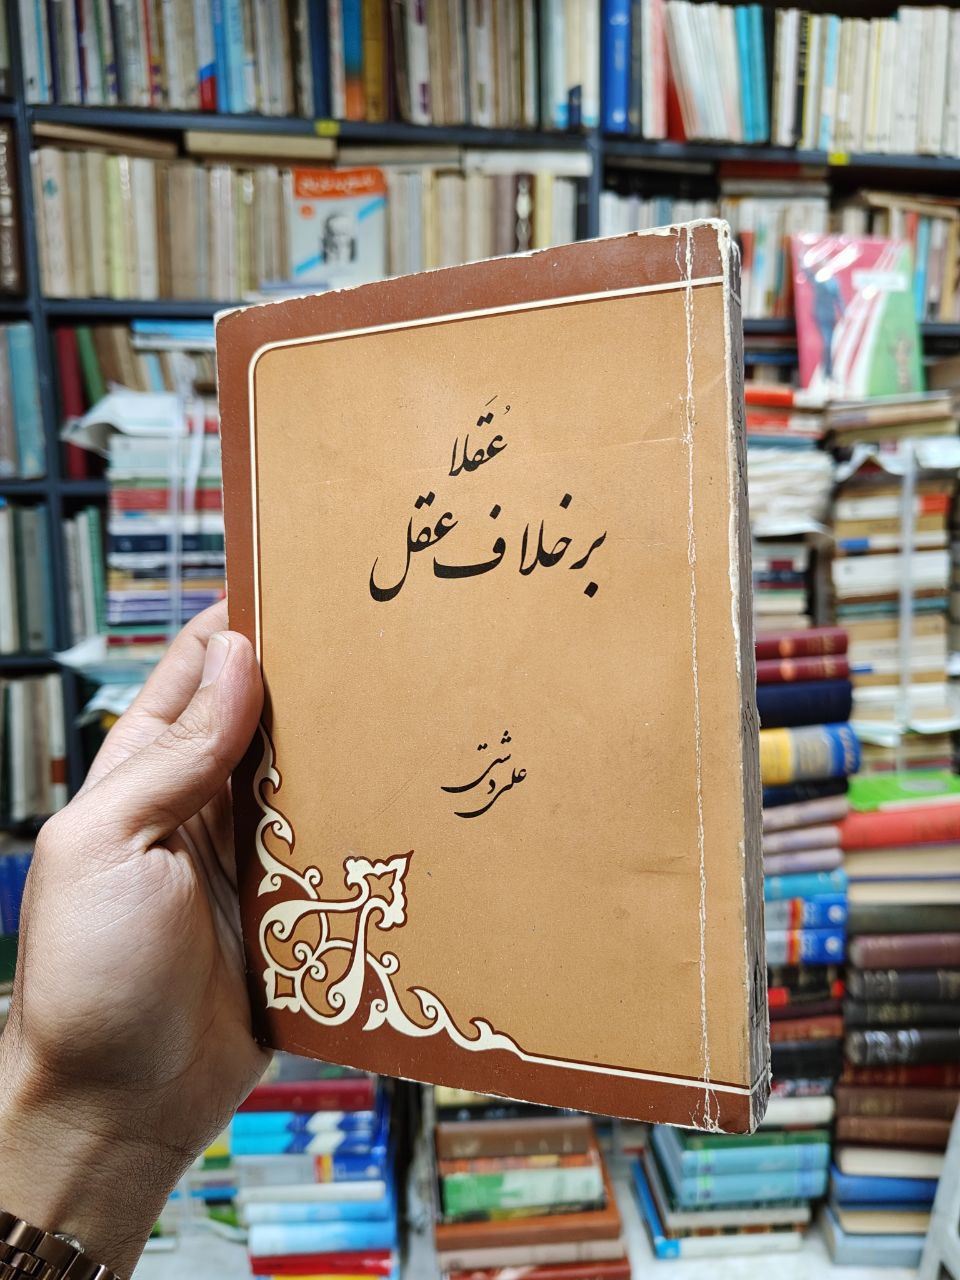 عُقَلا
بر خلاف عقل
علی دشتی